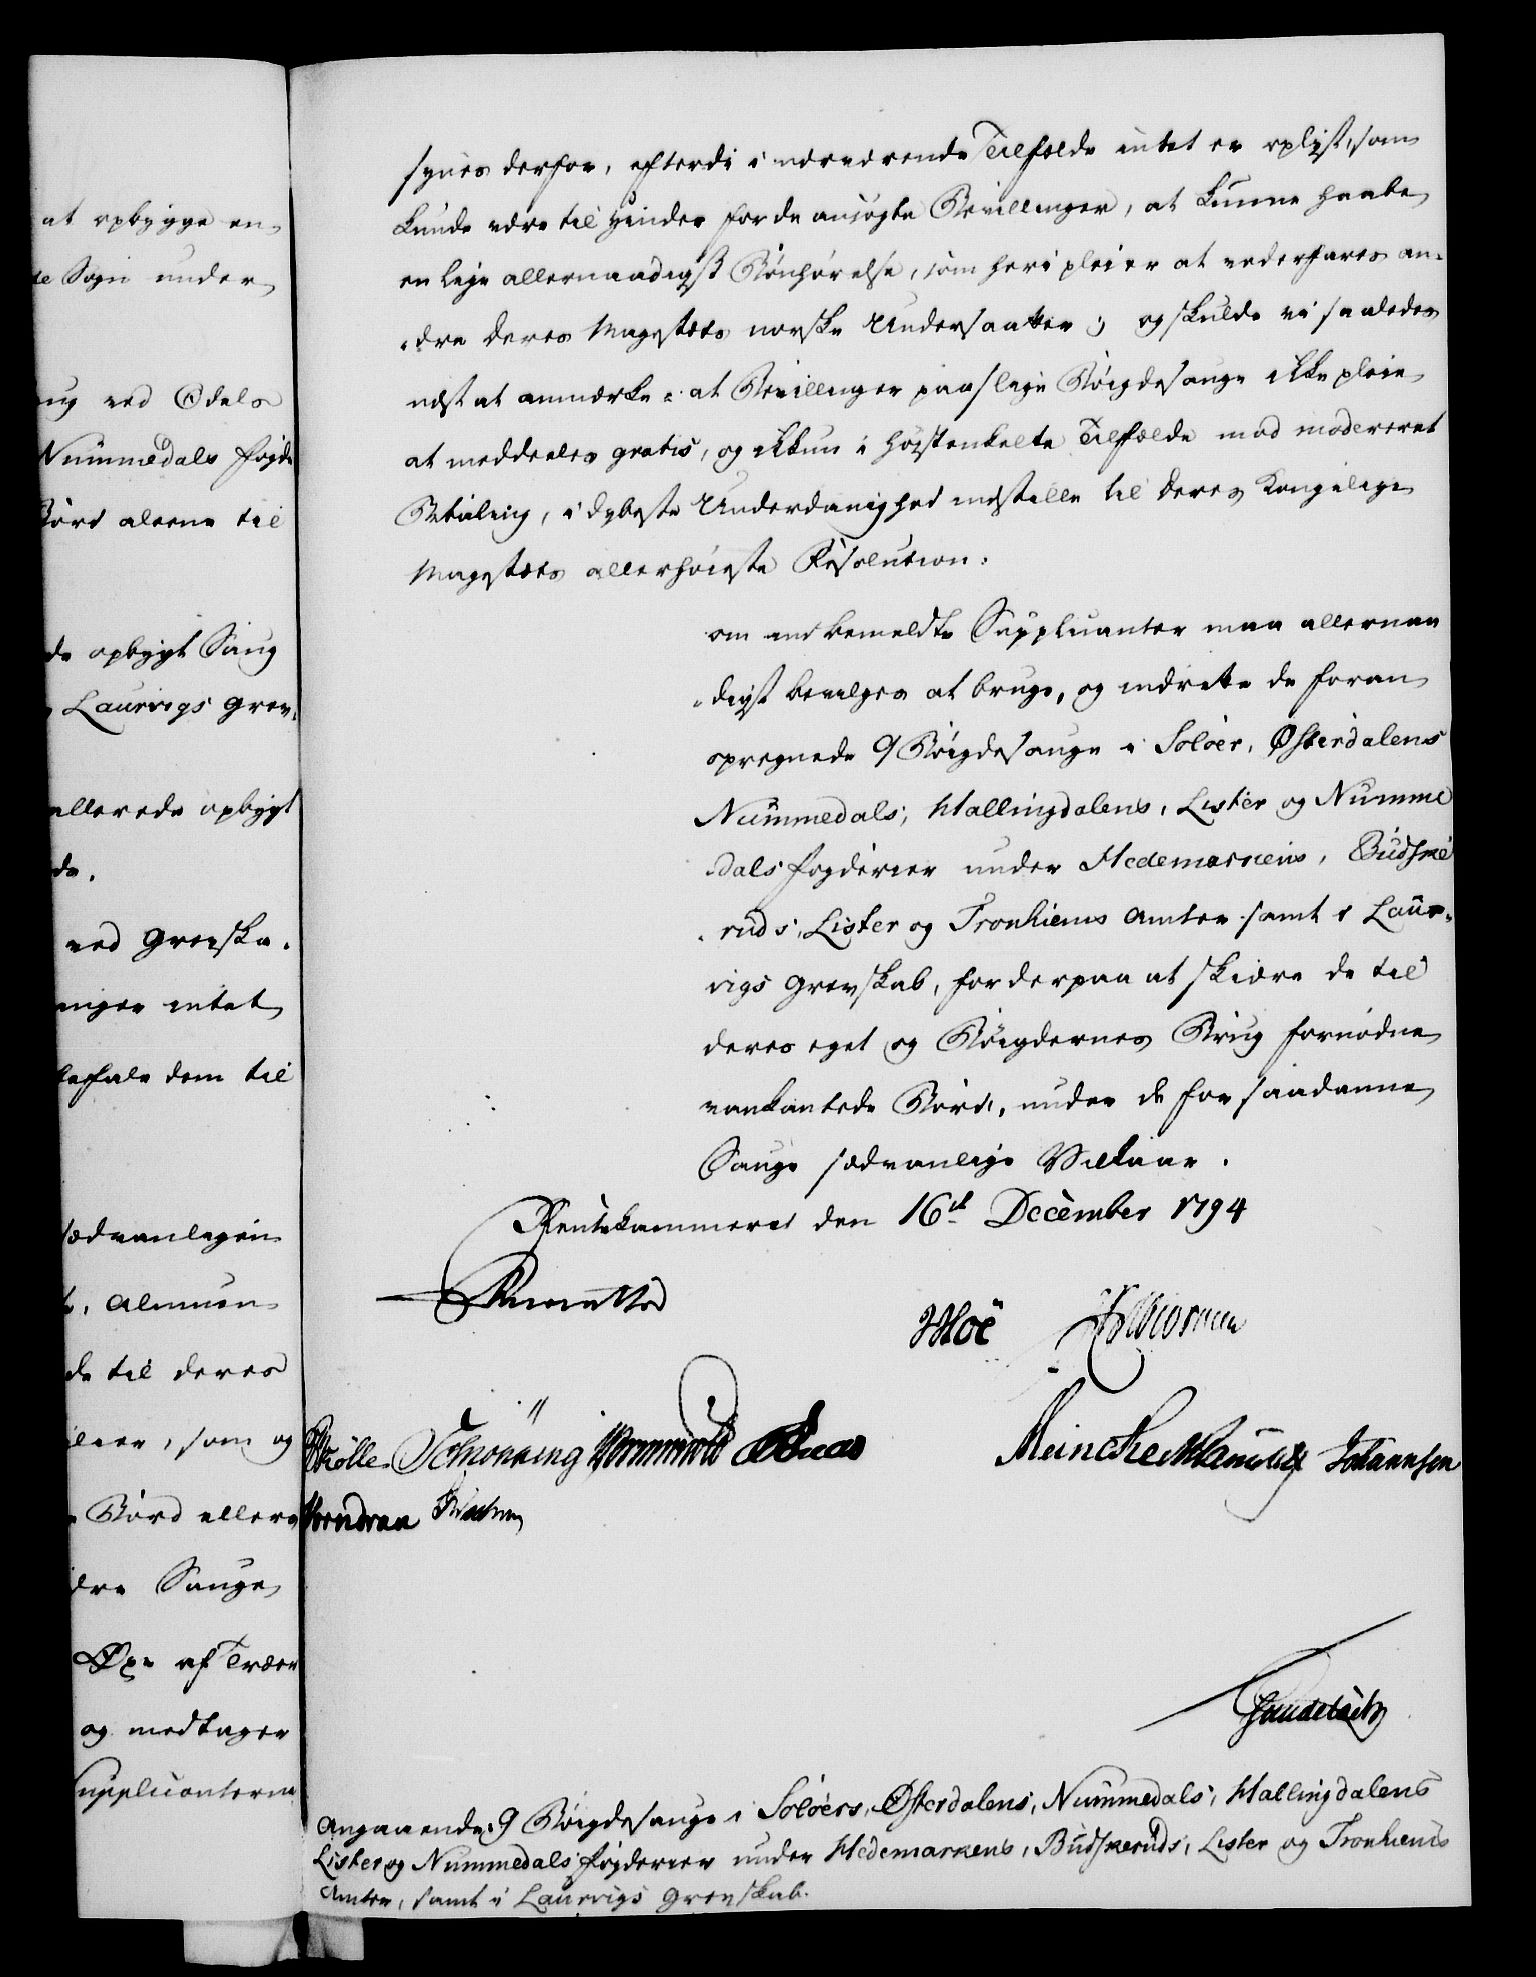 at opbygge en
te Sogn under
ug ved Odels
Nummedals Fogde
Bord aleene til
de opbygt Saug
Laurvigs Grev-
allerede opbygt
de.
ved Grevska-
inger intet
befale dem til
sædvanlige
Almuen
de til deres
som og
Bord ellers
dre Sauge
Øxe af Træer
og medtager
Supplicanterne
synes derfor, efterdi i nærværende Tilfælde intet er oplyst, som
kunde være til Hinder for de ansøgte Bevillinger, at kunne haabe
en lige allernaadigst Bønhørelse, som heri pleier at vederfares an-
dre Deres Majestæts norske Undersaatter; og skulde vi saaledes
næst at anmærke: at Bevillinger paa slige Bøigdesauge ikke pleie
at meddeeles gratis, og ikkun i høistenkelte Tilfælde mod modereret
Betaling, i dybeste Underdanighed indstille til Deres Kongelige
Majestæts allerhøieste Resolution:
om indbemeldte Supplicanter maa allernaa
digst bevilges at bruge, og indrette de foran
opregnede 9 Bøigdesauge i Soløer, Østerdalens
Nummedals, Hallingdalens, Lister og Numme
dals Fogderier under Hedemarkens, Budske
ruds, Lister og Tronhiems Amter samt i Laur-
vigs Grevskab, for derpaa at skiære de til
deres eget og Bøigdernes Brug fornødne
vankantede Bord, under de for saadanne
Sauge sædvanlige Vilkaar.
Rentekammeret den 16de December 1794
Moë
Schönning
Meincke Johannsen
Angaaende 9 Bøigdesauge i Soløers, Østerdalens, Nummedals, Hallingdalens
Lister og Nummedals Fogderier under Hedemarkens, Budskeruds, Lister og Tronhiems
Amter, samt i Laurvigs Grevskab.